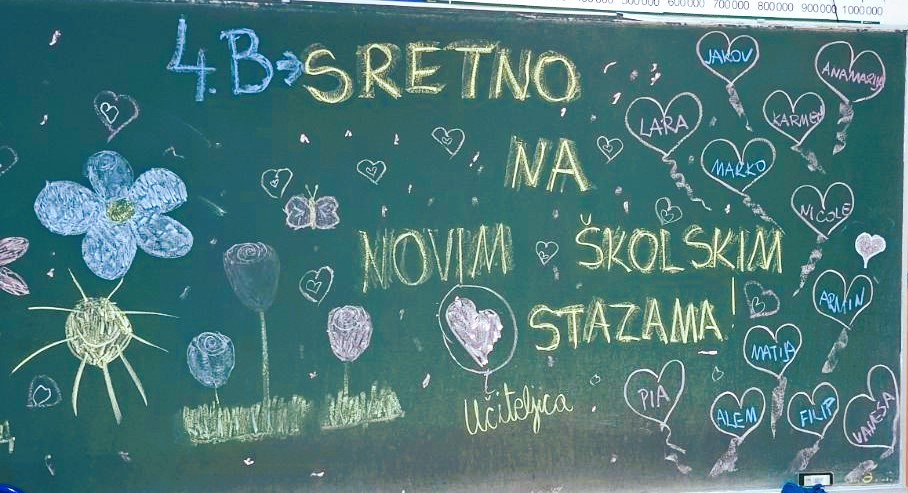 600000 700000 800000 900000 1000000
4.B→SRETNO
NA
NOVIM ŠKOLSKIM
STAZAMA!
Učiteljica
JAKOV
ANAMARIJA
LARA
KARMEN
MARKO
NICOLE
ARMIN
MATIJA
PIA
ALEM
FILIP
VANESA
B